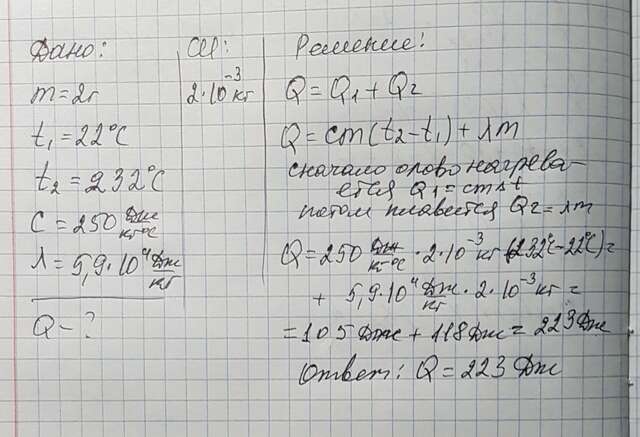 Дано:
m = 2г
t₁ = 22°C
t₂ = 232°C
C = 250 Дж/кг°C
λ = 5,9·10⁴ Дж/кг
Q - ?
СИ:
2·10⁻³ кг
Решение:
Q = Q₁ + Q₂
Q = cm(t₂ - t₁) + λm
сначало олово нагрева-
ется Q₁ = cmΔt
потом плавется Q₂ = λm
Q = 250 Дж/кг°C · 2·10⁻³ кг (232°C - 22°C) =
+ 5,9·10⁴ Дж/кг · 2·10⁻³ кг =
= 105 Дж + 118 Дж = 223 Дж
Ответ: Q = 223 Дж